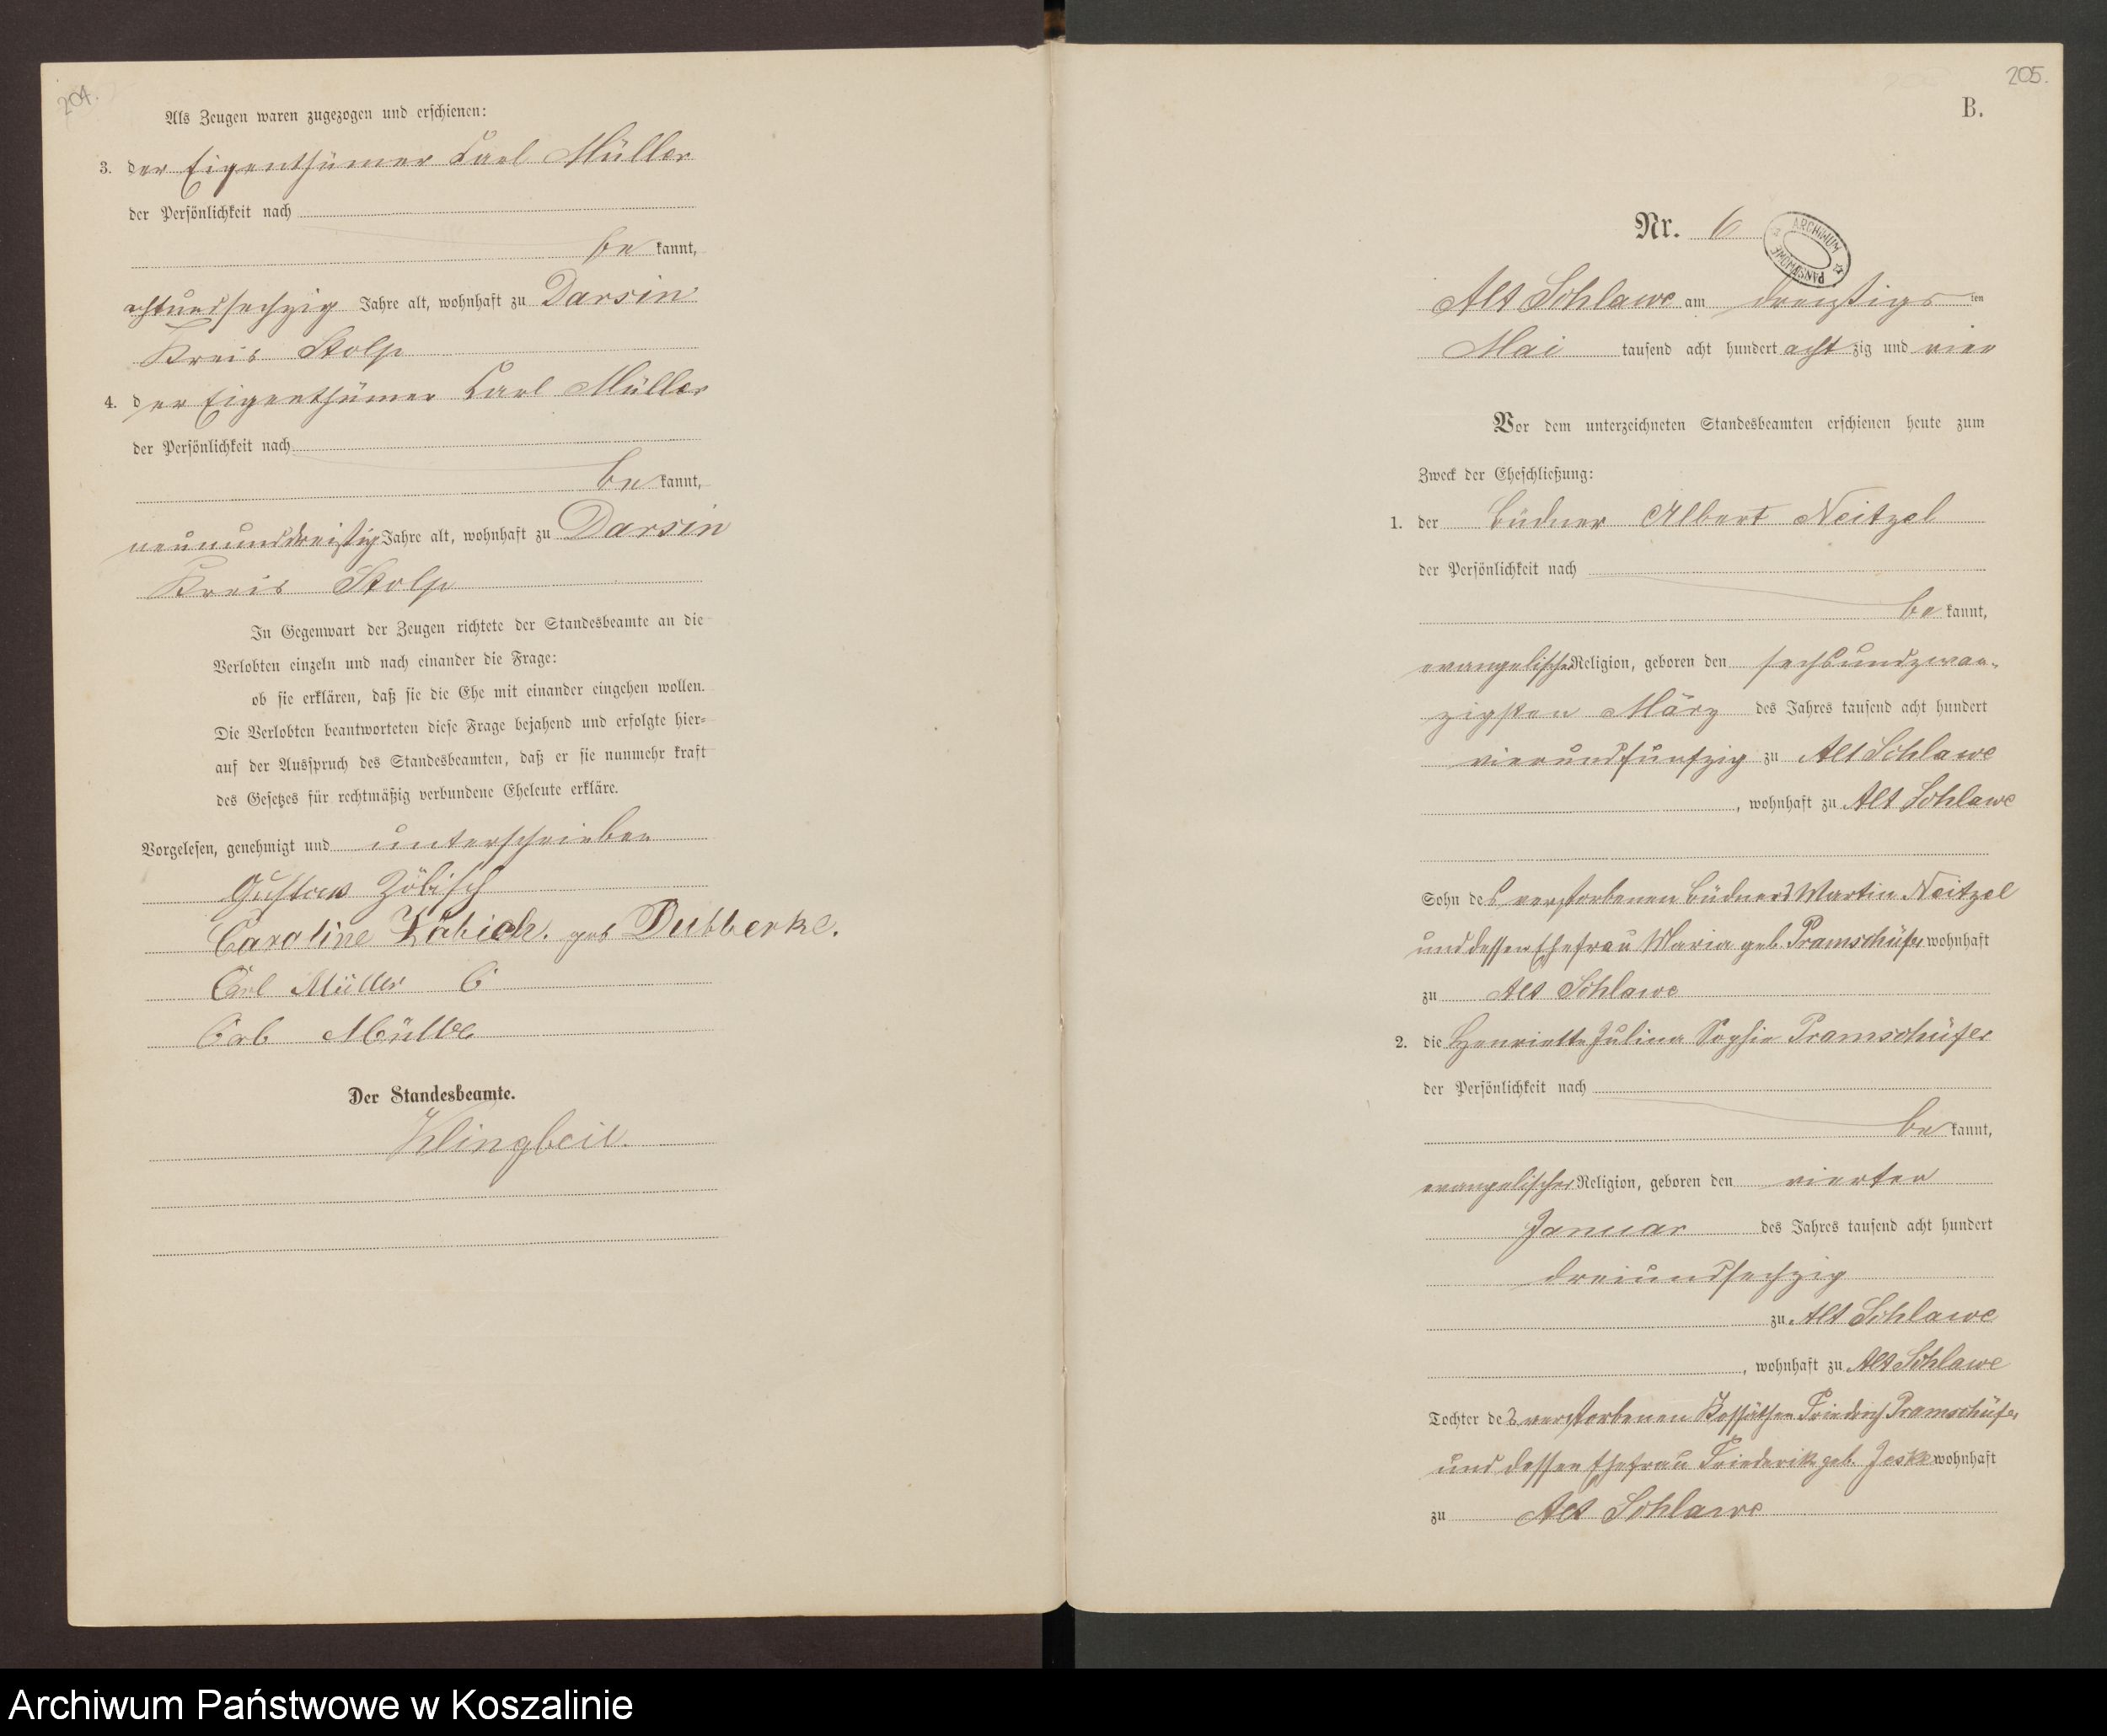 204.
Als Zeugen waren zugezogen und erschienen:
3. der Eigenthümer Carl Müller
der Persönlichkeit nach
be kannt,
achtundsechzig Jahre alt, wohnhaft zu Darsin
Kreis Stolp
4. der Eigenthümer Carl Müller
der Persönlichkeit nach
be kannt,
neununddreißig Jahre alt, wohnhaft zu Darsin
Kreis Stolp
In Gegenwart der Zeugen richtete der Standesbeamte an die
Verlobten einzeln und nach einander die Frage:
ob sie erklären, daß sie die Ehe mit einander eingehen wollen.
Die Verlobten beantworteten diese Frage bejahend und erfolgte hier-
auf der Ausspruch des Standesbeamten, daß er sie nunmehr kraft
des Gesetzes für rechtmäßig verbundene Eheleute erkläre.
Vorgelesen, genehmigt und unterschrieben
Gustav Zöbisch
Caroline geb Dubberke.
Carl Müller
Carl Müller
Der Standesbeamte.
Klingbeil.
205.
B.
Nr. 6
ARCHIWUM PAŃSTWOWE
Alt Schlawe am dreißigs ten
Mai tausend acht hundert acht zig und vier
Vor dem unterzeichneten Standesbeamten erschienen heute zum
Zweck der Eheschließung:
1. der Büdner Albert Neitzel
der Persönlichkeit nach
be kannt,
evangelischer Religion, geboren den sechsundzwan-
zigsten März des Jahres tausend acht hundert
vierundfünfzig zu Alt Schlawe
, wohnhaft zu Alt Schlawe
Sohn des verstorbenen Büdners Martin Neitzel
und dessen Ehefrau Maria geb. Pramschüfer wohnhaft
zu Alt Schlawe
2. die Henriette Juliane Sophie Pramschüfer
der Persönlichkeit nach
be kannt,
evangelischer Religion, geboren den vierten
Januar des Jahres tausend acht hundert
dreiundsechzig
zu Alt Schlawe
, wohnhaft zu Alt Schlawe
Tochter des verstorbenen Kossäthen Friedrich Pramschüfer
und dessen Ehefrau Friederike geb. Jeske wohnhaft
zu Alt Schlawe
Archiwum Państwowe w Koszalinie